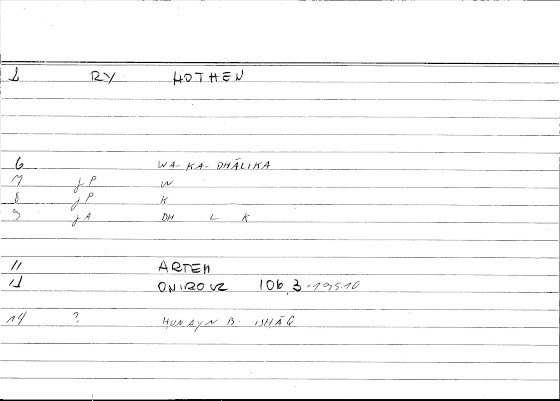 1 RY HOTHEN
6 WA-KA-DHĀLIKA
7 gP W
8 gP K
9 gA DH L K
11 ARTEM
12 ONIROCR 106,3-195,10
14 ? HUNAYN B. ISHĀQ